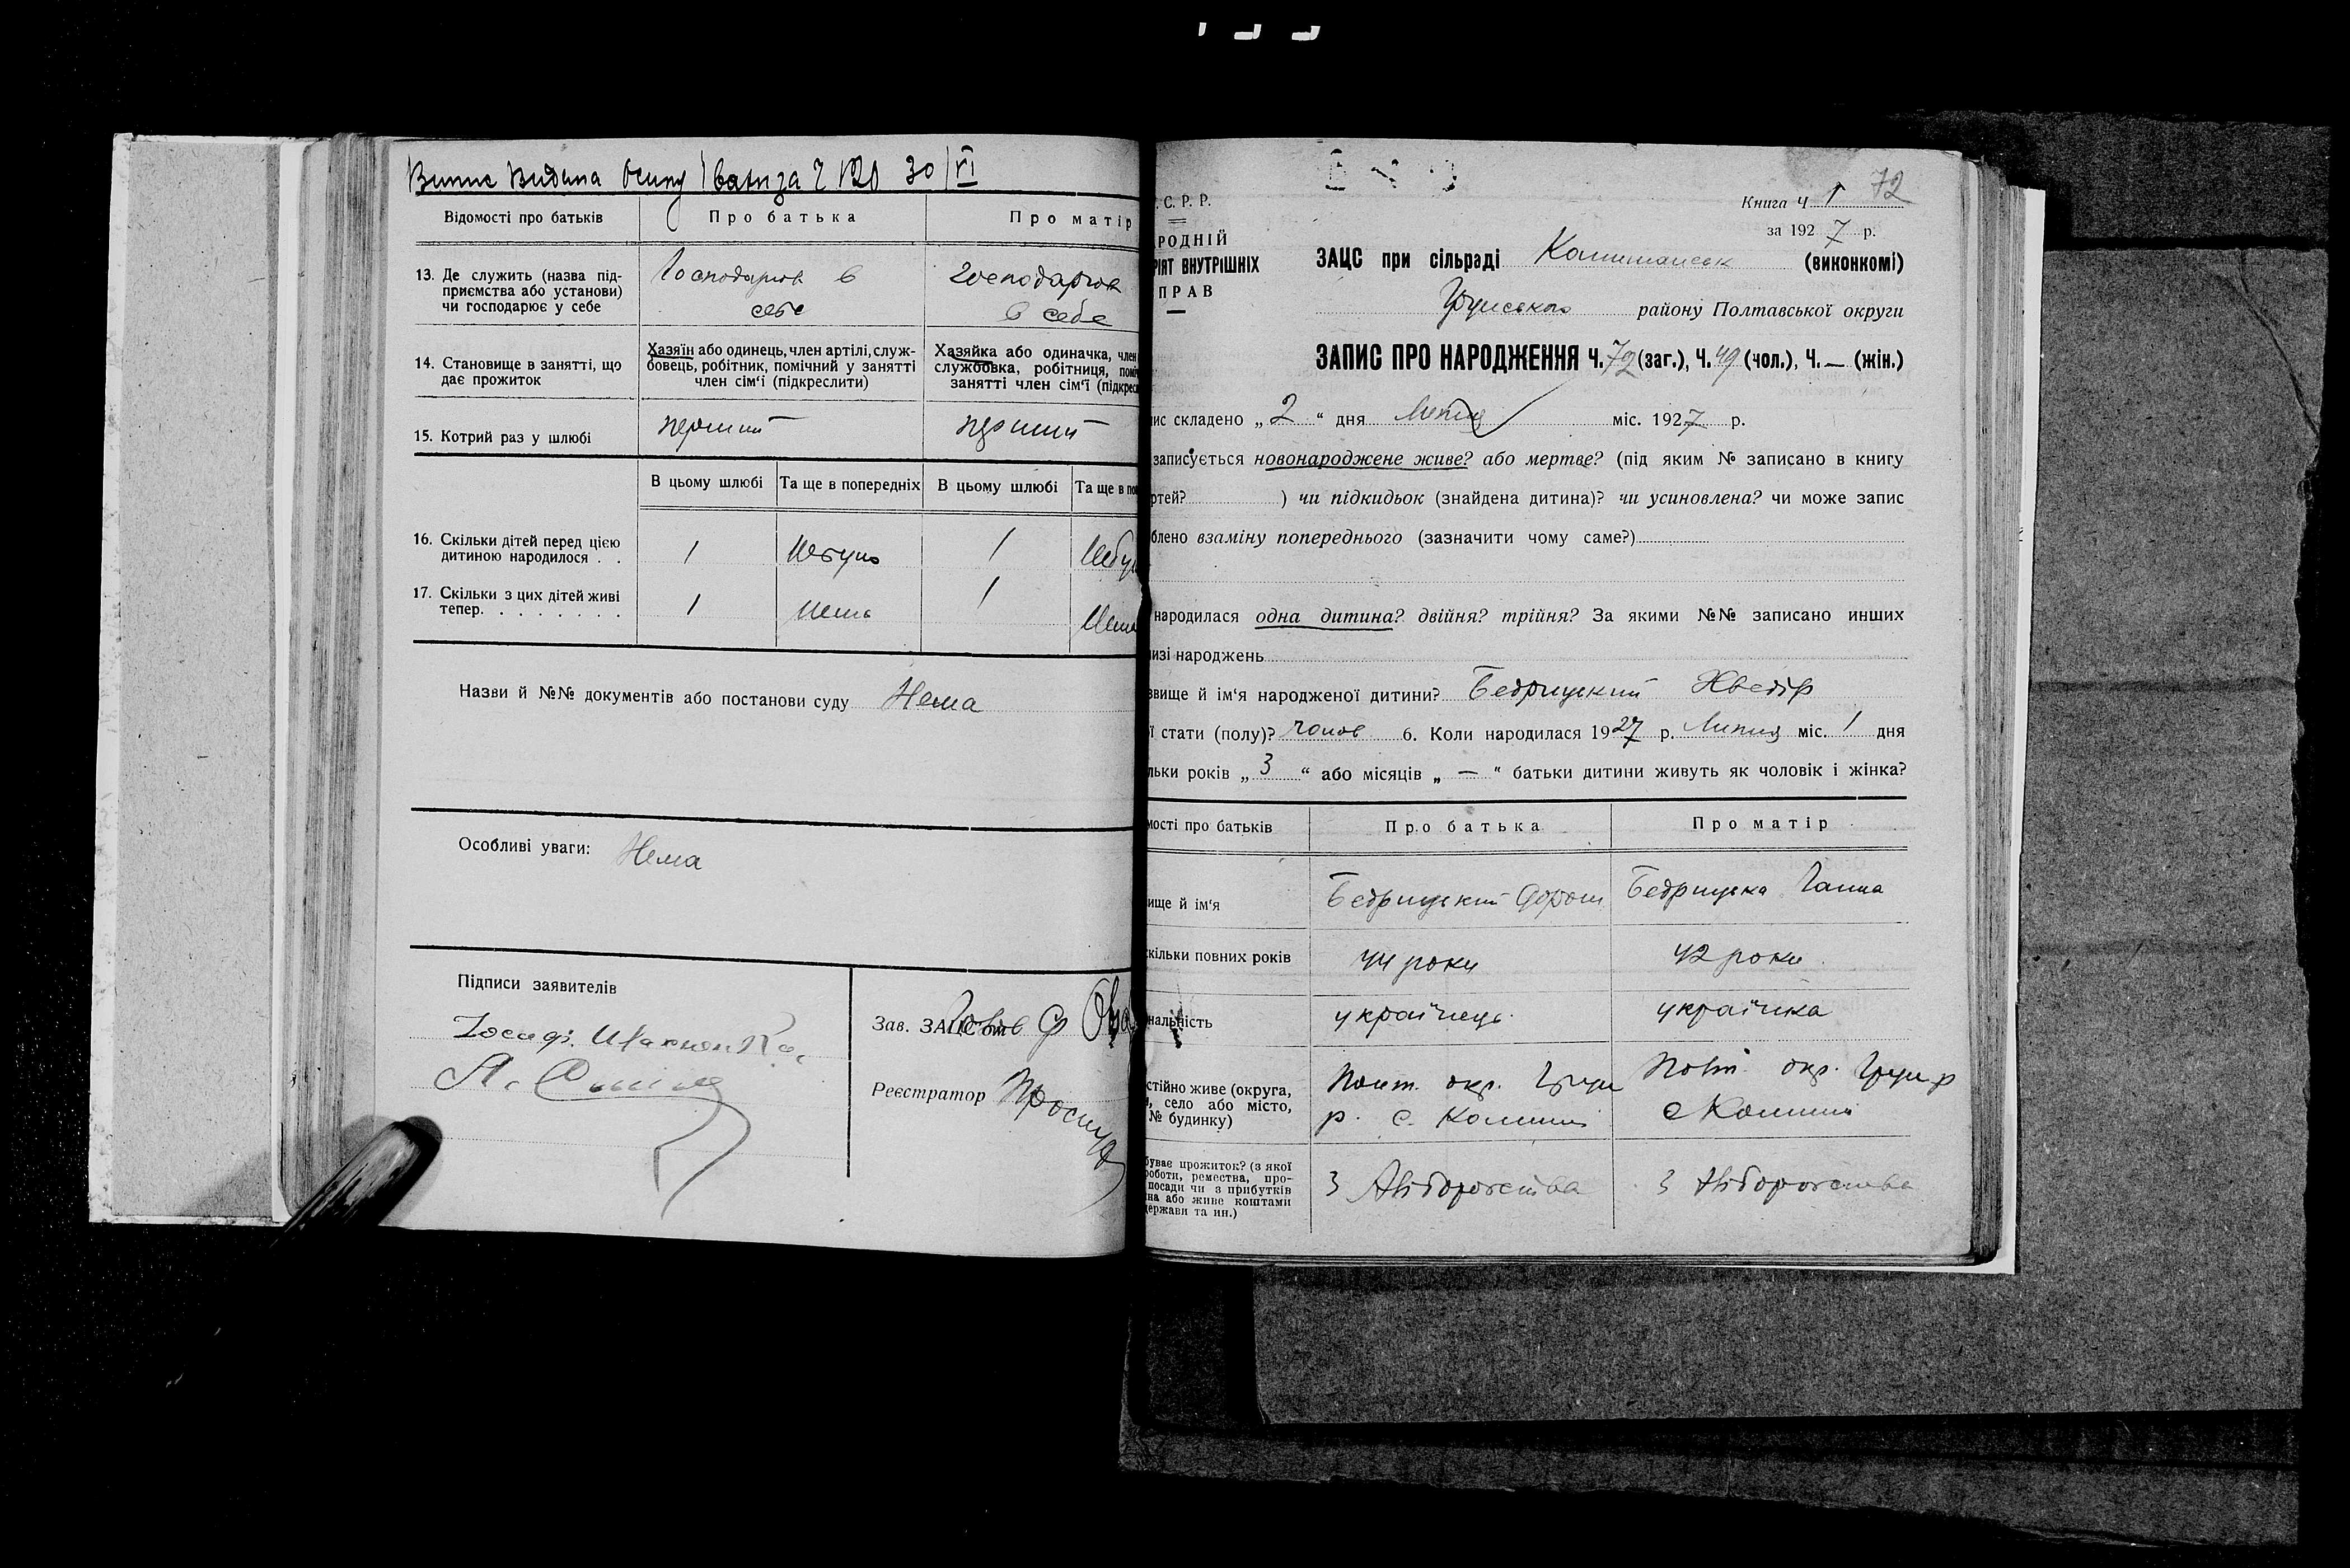 Випис видана Осипу 30/VI
Відомості про батьків
Про батька
Про матір
13. Де служить (назва під-
приємства або установи)
чи господарює у себе
Господарює в
себе
господарює
в себе
14. Становище в занятті, що
дає прожиток
Хазяїн або одинець, член артілі, служ-
бовець, робітник, помічний у занятті
член сім'ї (підкреслити)
Хазяйка або одиначка, член
службовка, робітниця,
занятті член сім'ї
15. Котрий раз у шлюбі
перший
перший
В цьому шлюбі
Та ще в попередніх
В цьому шлюбі
Та ще в
16. Скільки дітей перед цією
дитиною народилося . .
1
Небуло
1
17. Скільки з цих дітей живі
тепер. . . . . . . .
1
Нема
1
Нема
Назви й №№ документів або постанови суду Нема
Особливі уваги: Нема
Підписи заявителів
Зав. ЗАЦС'ом
Реєстратор
72
С. Р. Р.
Книга Ч 1
за 1927 р.
РОДНІЙ
РІЯТ ВНУТРІШНІХ
ПРАВ
ЗАЦС при сільраді (виконкомі)
району Полтавської округи
ЗАПИС ПРО НАРОДЖЕННЯ Ч. 72 (заг.), Ч. 49 (чол.), Ч. — (жін.)
ис складено „ 2 “ дня Липця міс. 1927 р.
записується новонароджене живе? або мертве? (під яким № записано в книгу
ртей? ) чи підкидьок (знайдена дитина)? чи усиновлена? чи може запис
блено взаміну попереднього (зазначити чому саме?)
народилася одна дитина? двійня? трійня? За якими №№ записано инших
изі народжень
звище й ім'я народженої дитини? Бедрицький Хведір
ї стати (полу)? чолов 6. Коли народилася 1927 р. Липця міс. 1 дня
льки років „ 3 “ або місяців „ — “ батьки дитини живуть як чоловік і жінка?
мості про батьків
Про батька
Про матір
вище й ім'я
Бедрицький
Бедрицька Ганна
кільки повних років
44 роки
42 роки
нальність
українець
українка
стійно живе (округа,
н, село або місто,
№ будинку)
Полт. окр.
р. с.
Полт. окр.
с
буває прожиток? (з якої
роботи, ремества, про-
посади чи з прибутків
на або живе коштами
держави та ин.)
З хліборобства
З хліборобства